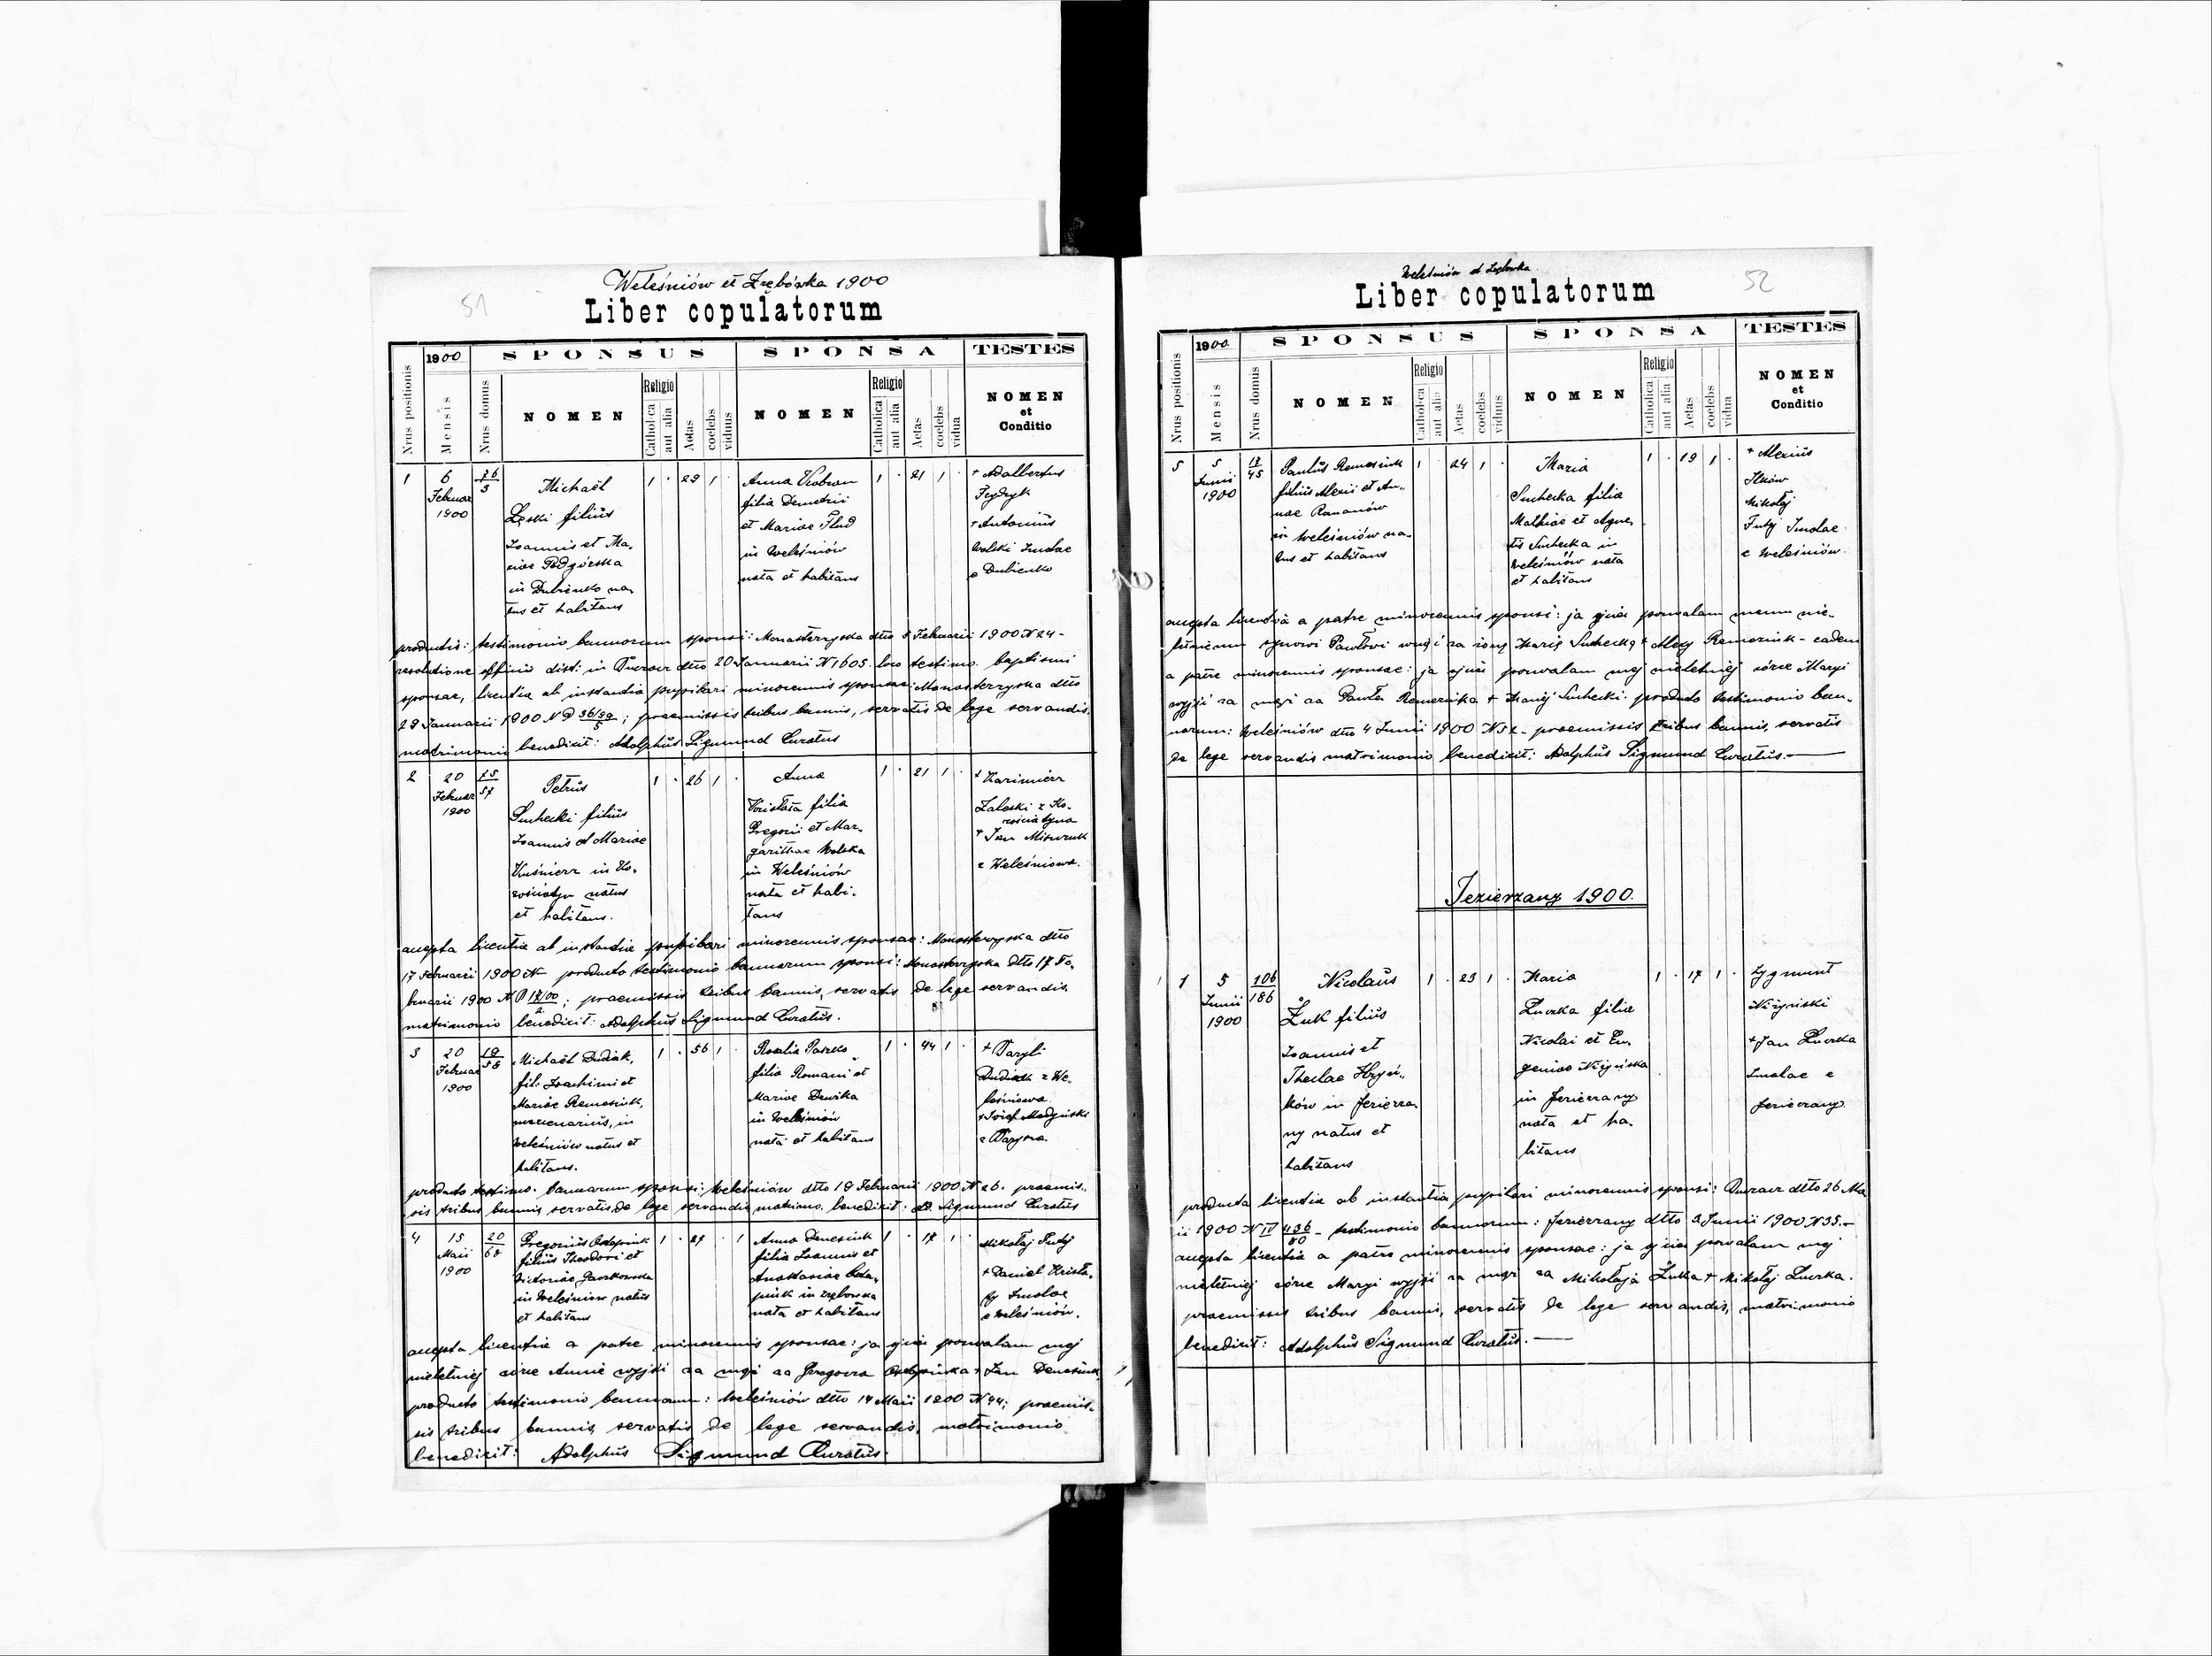 51
Weleśniów et Zrębówka 1900
Liber copulatorum
Nrus positionis
1900
Mensis
Nrus domus
SPONSUS
NOMEN
Religio
Catholica
aut alia
Aetas
coelebs
viduus
SPONSA
NOMEN
Religio
Catholica
aut alia
Aetas
coelebs
vidua
TESTES
NOMEN
et
Conditio
1
6
Februar
1900
Michaël
Łęski filius
Joannis et Ma-
riae Podgórska
in Dubienko na-
tus et habitans
1 . 29 1 .
Anna
filia Demetrii
et Mariae
in Weleśniów
nata et habitans
1 . 21 1 .
+ Adalbertus
Frydryk
+ Antonius
Wolski Incolae
e Dubienko
productis: testimonio bannorum sponsi: Monasterzyska dtto 5 Februarii 1900 N 24 -
resolutione dtto 20 Januarii N 1605. loco testimo. baptismi
sponsae, licentia ab instantia pupilari minorennis sponsae: Monasterzyska dtto
29 Januarii 1900 praemissis tribus bannis, servatis de lege servandis,
matrimonio benedixit: Adolphus Sigmund Curatus
2
20
Februar
1900
25
57
Petrus
Suchecki filius
Joannis et Mariae
Kuśnierz in Ko-
rościatyn natus
et habitans.
1 . 26 1 .
Anna
filia
Gregorii et Mar-
garithae Wolska
in Weleśniów
nata et habi-
tans
1 . 21 1 .
+ Kazimierz
Zaleski z Ko-
rościatyna
+ Jan
z Weleśniowa.
accepta licentia ab instantia pupilari minorennis sponsae: Monasterzyska dtto
17 Februarii 1900 N producto testimonio bannorum sponsi: Monasterzyska dtto 17 Fe-
bruarii 1900 praemissis tribus bannis, servatis de lege servandis,
matrimonio benedixit: Adolphus Sigmund Curatus.
3
20
Februar
1900
19
58
Michaël Dudiak,
fil: Joachimi et
Mariae Remeziuk,
mercenarius, in
Weleśniów natus et
habitans.
1 . 56 1 .
Rosalia Paszko
filia Romani et
Mariae
in Weleśniów
nata et habitans
1 . 44 1 .
+ Bazyli
Dudiak z We-
leśniowa
+ Józef Madyński
z Barysza.
producto testimo. bannorum sponsi: Weleśniów dtto 19 Februarii 1900 N 26. praemis-
sis tribus bannis, servatis de lege servandis matrimo. benedixit: Ad. Sigmund Curatus
4
15
Maii
1900
20
68
Gregorius
filius Theodori et
Victoriae
in Weleśniów natus
et habitans
1 . 27 . 1
Anna Denesiuk
filia Joannis et
Anastasiae
in Zrębówka
nata et habitans
1 . 17 1 .
Mikołaj Futyj
+ Daniel
Incolae
e Weleśniów.
accepta licentia a patre minorennis sponsae: ja ojciec pozwalam mej
nieletniej córce Annie wyjść za mąż za Grzegorza + Jan Denesiuk
producto testimonio bannorum: Weleśniów dtto 14 Maii 1900 N 44; praemis-
sis tribus bannis, servatis de lege servandis, matrimonio
benedixit: Adolphus Sigmund Curatus.
52
Weleśniów et Zrębowka
Liber copulatorum
Nrus positionis
1900
Mensis
Nrus domus
SPONSUS
NOMEN
Religio
Catholica
aut alia
Aetas
coelebs
viduus
SPONSA
NOMEN
Religio
Catholica
aut alia
Aetas
coelebs
vidua
TESTES
NOMEN
et
Conditio
5
5
Junii
1900
Paulus Remeziuk
filius Alexii et An-
nae Romanów
in Weleśniów na-
tus et habitans
1 . 24 1 .
Maria
Suchecka filia
Mathiae et Agne-
tis Suchecka in
Weleśniów nata
et habitans
1 . 19 1 .
+ Alexius
Ilków
Mikołaj
Futyj Incolae
e Weleśniów.
accepta licentia a patre minorennis sponsi: ja ojciec pozwalam memu nie-
letniemu synowi Pawłowi wziąć za żonę Maryę Suchecką + Alexy Remeziuk - eadem
a patre minorennis sponsae: ja ojciec pozwalam mej nieletniej córce Maryi
wyjść za mąż za Pawła Remeziuka + Maciej Suchecki. producto testimonio ban-
norum: Weleśniów dtto 4 Junii 1900 N 52 - praemissis tribus bannis, servatis
de lege servandis matrimonio benedixit: Adolphus Sigmund Curatus. —
Jezierzany 1900.
1
5
Junii
1900
106
186
Nicolaus
Żuk filius
Joannis et
Theclae Hryń-
ków in Jezierza-
ny natus et
habitans
1 . 23 1 .
Maria
Łuczka filia
Nicolai et Eu-
geniae Niżyńska
in Jezierzany
nata et ha-
bitans
1 . 17 1 .
Zygmunt
Niżyński
+ Jan Łuczka
Incolae e
Jezierzany
producta licentia ab instantia pupilari minorennis sponsi: Buczacz dtto 26 Ma-
ii 1900 N IV 436/80 - testimonio bannorum: Jezierzany dtto 3 Junii 1900 N 35. -
accepta licentia a patre minorennis sponsae: ja ojciec pozwalam mej
nieletniej córce Maryi wyjść za mąż za Mikołaja Żuka + Mikołaj Łuczka.
praemissis tribus bannis, servatis de lege servandis, matrimonio
benedixit: Adolphus Sigmund Curatus. —